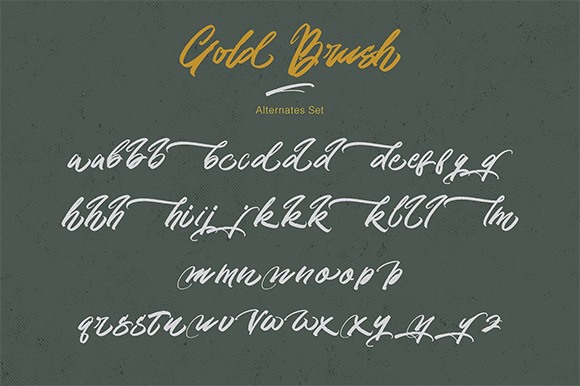 Gold Brush
Alternates Set
aabbb bccdddd deeffgg
hhh hiijjkkkk klll lm
mmnnnoopp
qrssttuuvvwwxxyyyyz